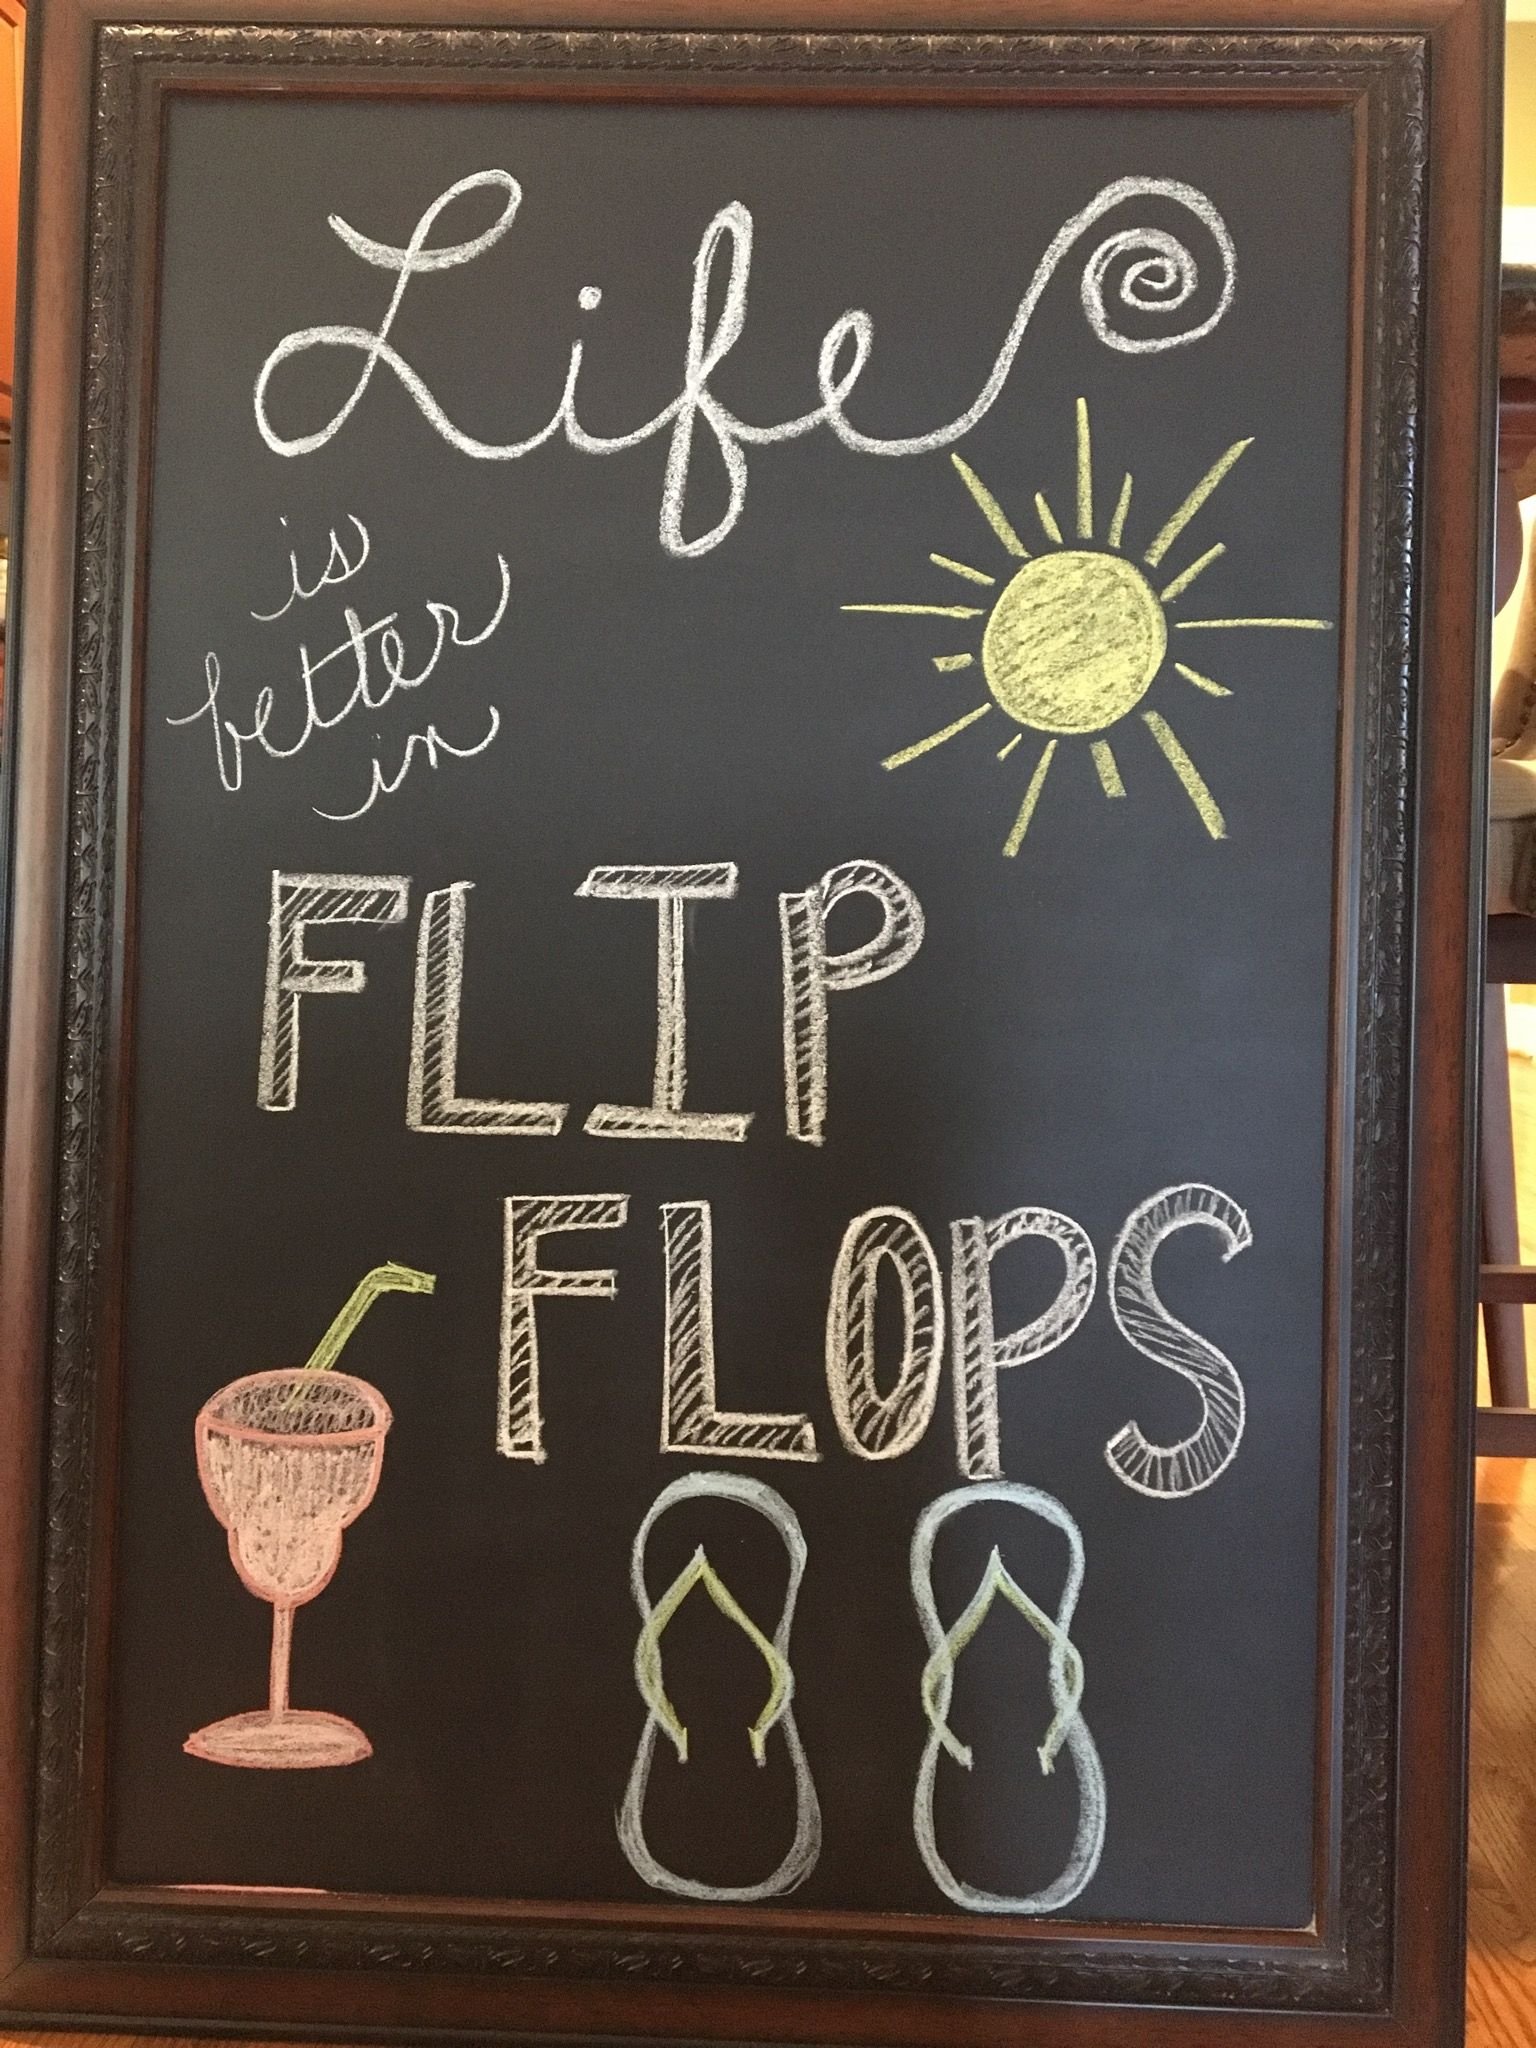 Life
is
better
in
FLIP
FLOPS